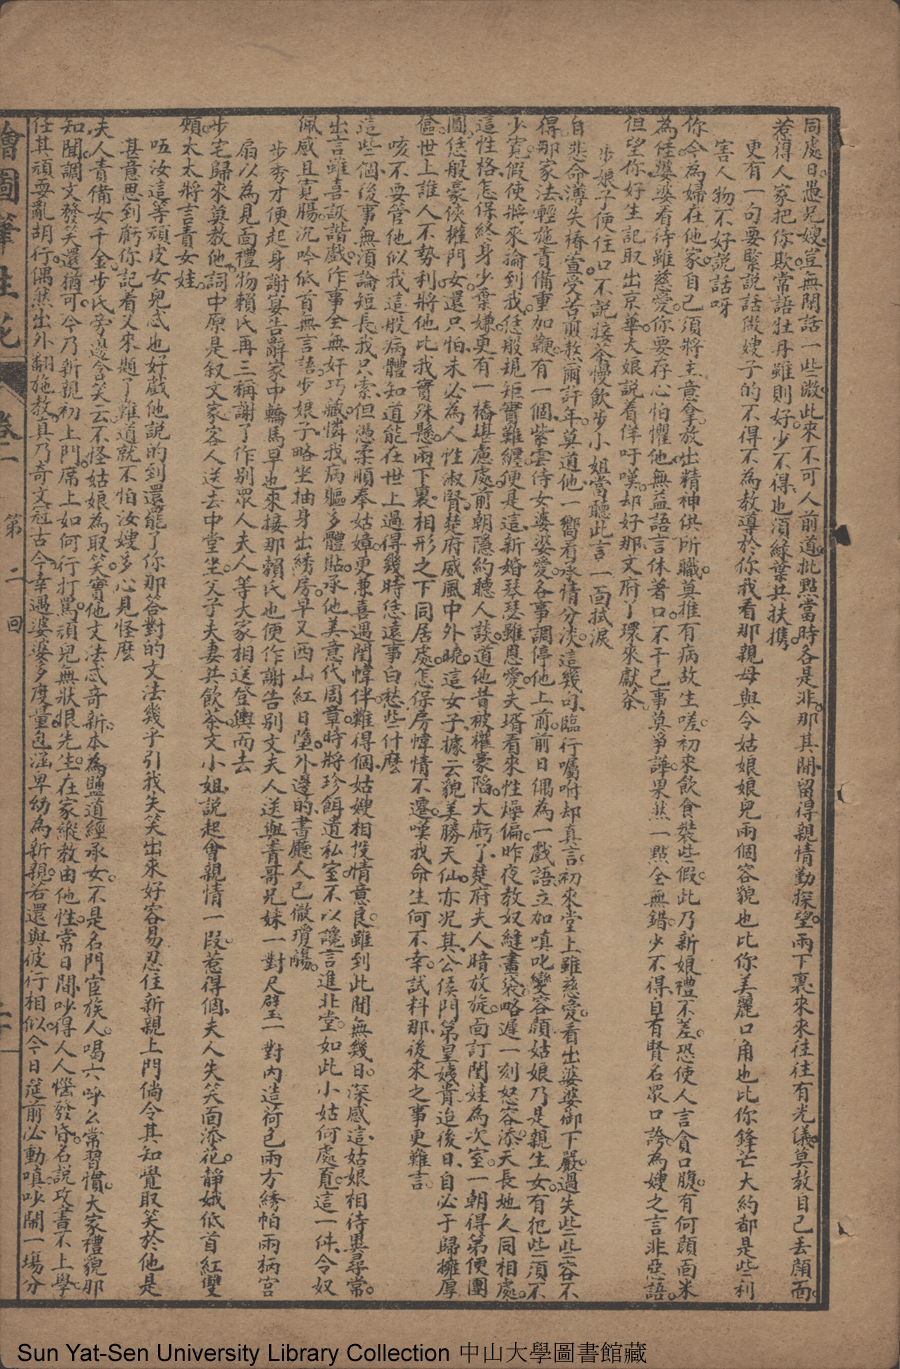 同處日愚兄嫂豈無閒話一些微此來不可人前道批點當時各是非那其間留得親情勤探望兩下裏來來往往有光儀莫教自己丟顏面
惹得人家把你欺常語牡丹雖則好少不得也須綠葉共扶攜
更有一句要緊說話做嫂子的不得不為教導於你我看那親母與令姑娘娘兒兩個容貌也比你美麗口角也比你鋒芒大約都是些利
害人物不好說話呀
你今為婦在他家自己須將主意拿放出精神供所職莫推有病故生嗟初來飲食裝些假此乃新娘禮不差恐使人言貪口腹有何顏面米
為住婆婆看待雖慈愛你要存心怕懼他無益語言休著口不干己事莫爭譁果然一點全無錯少不得自有賢名眾口誇為嫂之言非惡語
但望你好生記取出京華大娘說着佯吁嘆却好那文府丫環來獻茶
步娘子便住口不說接茶慢飲步小姐當聽此言一面拭淚
自悲命薄失椿萱受苦前教爾許年莫道他一嚮看承情分淡這幾句臨行囑咐却真言初來堂上雖慈愛看出婆婆御下嚴過失些些容不
得那家法輕施責備重加鞭有一個紫雲侍女婆婆愛各事調停他上前前日偶為一戲語立加嗔叱變容顏姑娘乃是親生女有犯些須不
少寬假使將來論到我恁般規矩實難纏便是這新婚琴瑟雖恩愛夫壻看來性燥偏昨夜教奴縫畫袋略遲一刻怒容添天長地久同相處
這性格怎保終身少棄嫌更有一樁堪慮處前朝隱約聽人談道他昔被權豪陷大虧了楚府夫人暗放旋面訂閨娃為次室一朝得第便團
圓恁般豪俠權門女還只怕未必為人性淑賢楚府威風中外曉這女子據云貌美勝天仙亦况其公侯門第皇姨貴迨後日自必于歸擁厚
奩世上誰人不勢利將他比我實殊懸兩下裏相形之下同居處怎保房幃情不遷嘆我命生何不幸試料那後來之事更難言
咳不要管他似我這般病體知道能在世上過得幾時恁遠事白愁些什麽
這些個後事無須論短長我只索但憑柔順奉姑嫜更兼喜遇閨幃伴難得個姑嫂相投情意良雖到此間無幾日深感這姑娘相待異尋常
出言雖喜詼諧戲作事全無奸巧藏憐我病軀多體貼承他美意代周章時將珍餌遺私室不以讒言進北堂如此小姑何處覓這一件令奴
佩感且寬腸沉吟低首無言語步娘子略坐抽身出綉房早又西山紅日墮外邊的書廳人已徹瓊觴
步秀才便起身謝宴告辭家中輪馬早也來接那賴氏也便作謝告別文夫人送與青哥兄妹一對尺璧一對內造荷包兩方綉帕兩柄宮
扇以為見面禮物賴氏再三稱謝了作別眾人夫人等大家相送登輿而去
步宅歸來莫教他詞中原是叙文家客人送去中堂坐父子夫妻共飲茶文小姐說起會親情一段惹得個夫人失笑面添花靜娥低首紅雙
頰太太將言責女娃
唔汝這等頑皮女兒忒也好戲他說的到還罷了你那答對的文法幾乎引我失笑出來好容易忍住新親上門倘令其知覺取笑於他是
甚意思到虧你記着又來題了難道就不怕汝嫂多心見怪麽
夫人責備女千金步氏旁邊含笑云不怪姑娘為取笑實他文法忒奇新本為鹽道經承女不是名門宦族人喝六呼么常習慣大家禮貌那
知聞調文發笑還猶可今乃新親初上門席上如何行打罵頑兒無狀恨先生在家縱教由他性常日間吵得人人惱發昏名說攻書不上學
任其頑耍亂胡行偶然出外翻施教真乃奇文冠古今幸遇婆婆多度量包涵卑幼為新親若還與彼行相似今日筵前必動嗔吵鬧一場分
繪圖筆生花
卷二
第二回
二十一
Sun Yat-Sen University Library Collection 中山大學圖書館藏